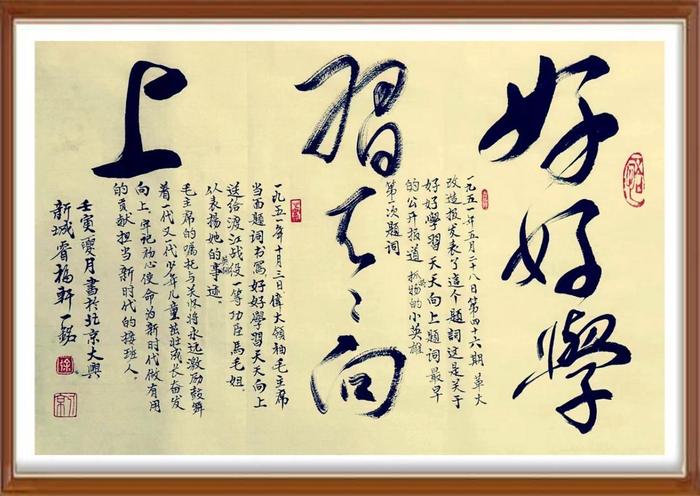 好好學
一九五一年五月二十八日第四十六期 革大
改造报发表了這个题詞这是关于
好好學習天天向上题词最早
的公开报道 的小英雄
第一次题词
習天〻向
一九五一年十月三日偉大领袖毛主席
当面题词书写好好學習天天向上
送给渡江战役一等功臣馬毛姐
以表揚她的事迹。
上
毛主席的嘱托与关怀将永远激励鼓舞
着一代又一代少年儿童茁壮成长奋发
向上，牢记初心使命为新时代做有用
的贡献担当新时代的接班人。
壬寅夏月書於北京大興
新城睿福轩一銘